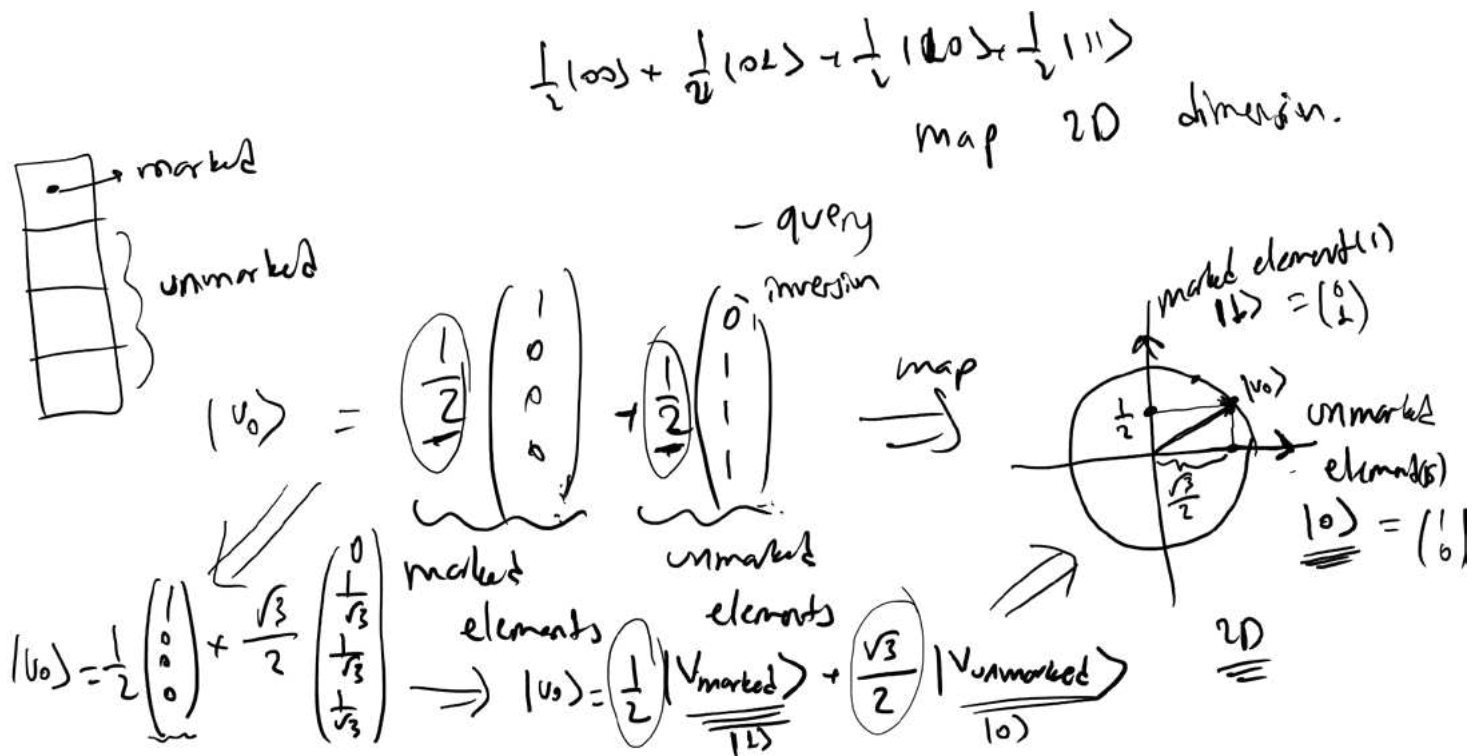 1/2 |00⟩ + 1/2 |01⟩ + 1/2 |10⟩ + 1/2 |11⟩
map 2D dimension.
marked
unmarked
- query
inversion
|v₀⟩ = 1/2 (1 0 0 0) + 1/2 (0 1 1 1)
marked
elements
unmarked
elements
map
marked element(1)
|1⟩ = (0 1)
|v₀⟩
1/2
√3/2
unmarked
element(s)
|0⟩ = (1 0)
2D
|v₀⟩ = 1/2 (1 0 0 0) + √3/2 (0 1/√3 1/√3 1/√3)
|v₀⟩ = 1/2 |Vmarked⟩ + √3/2 |Vunmarked⟩
|1⟩
|0⟩